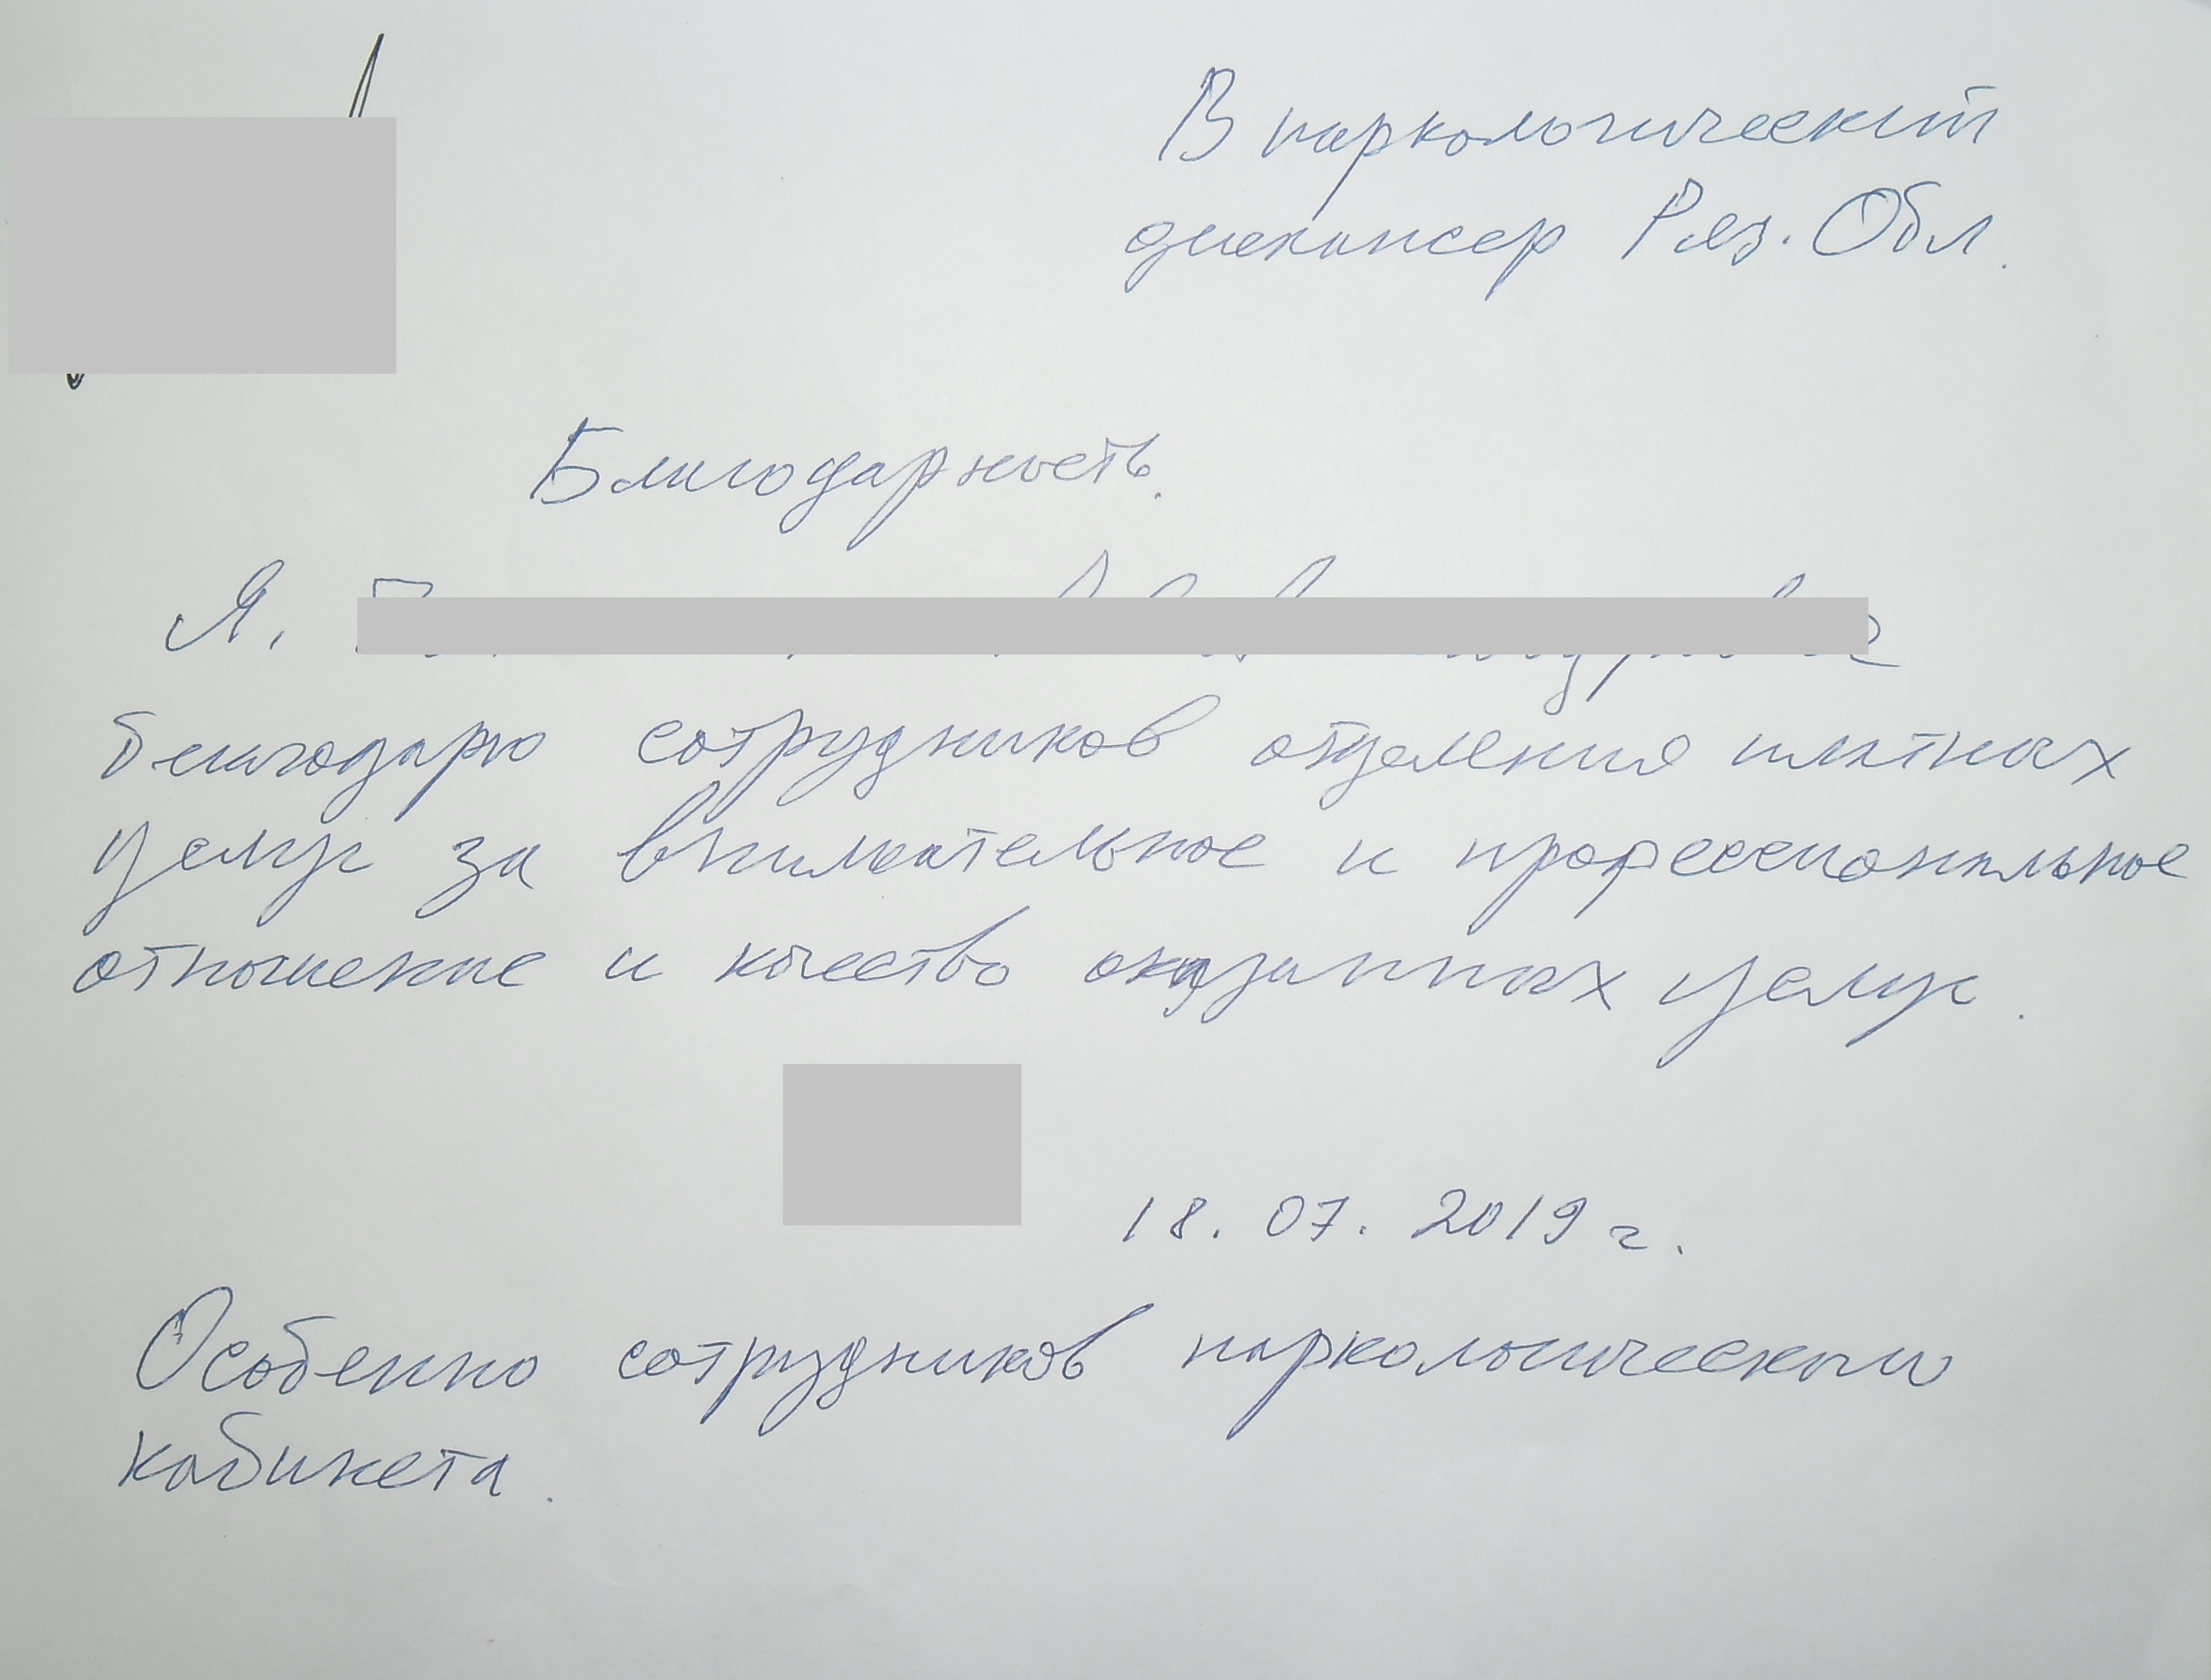 В наркологический
диспансер Ряз. Обл.
Благодарность.
Я,
благодарю сотрудников отделения платных
услуг за внимательное и профессиональное
отношение и качество оказанных услуг.
18. 07. 2019 г.
Особенно сотрудников наркологического
кабинета.